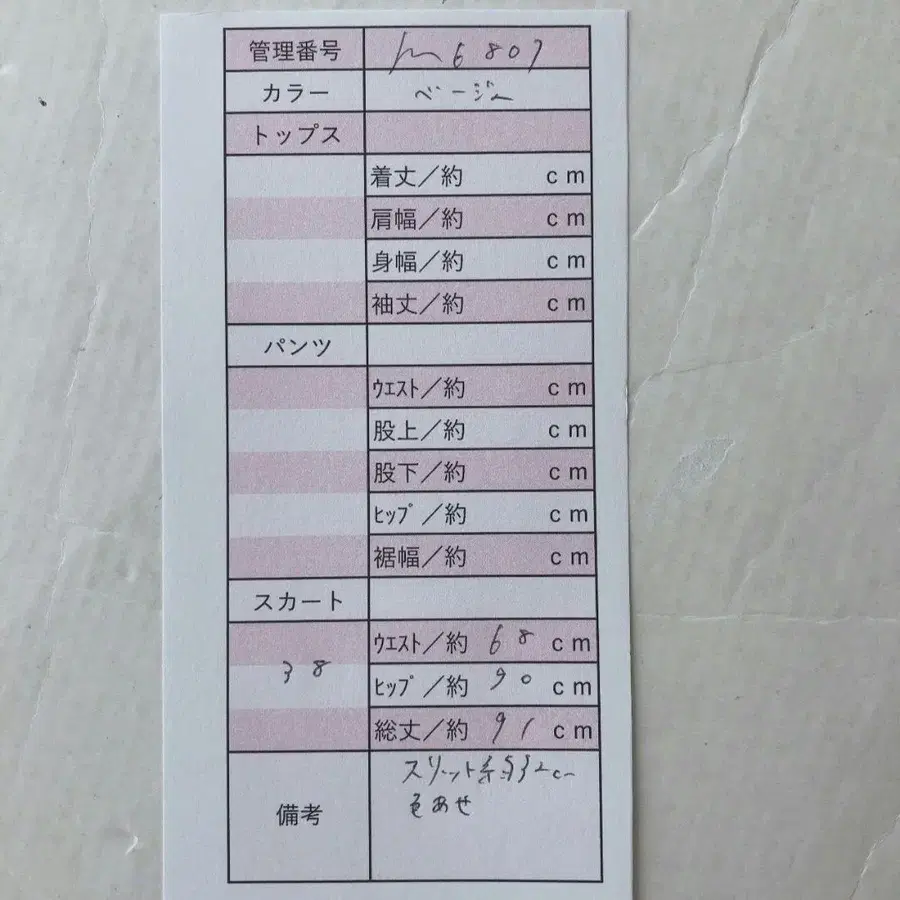 管理番号 m6807
カラー ベージュ
トップス
着丈／約 cm
肩幅／約 cm
身幅／約 cm
袖丈／約 cm
パンツ
ウエスト／約 cm
股上／約 cm
股下／約 cm
ヒップ／約 cm
裾幅／約 cm
スカート
38
ウエスト／約 68 cm
ヒップ／約 90 cm
総丈／約 91 cm
備考
スリット
色あせ